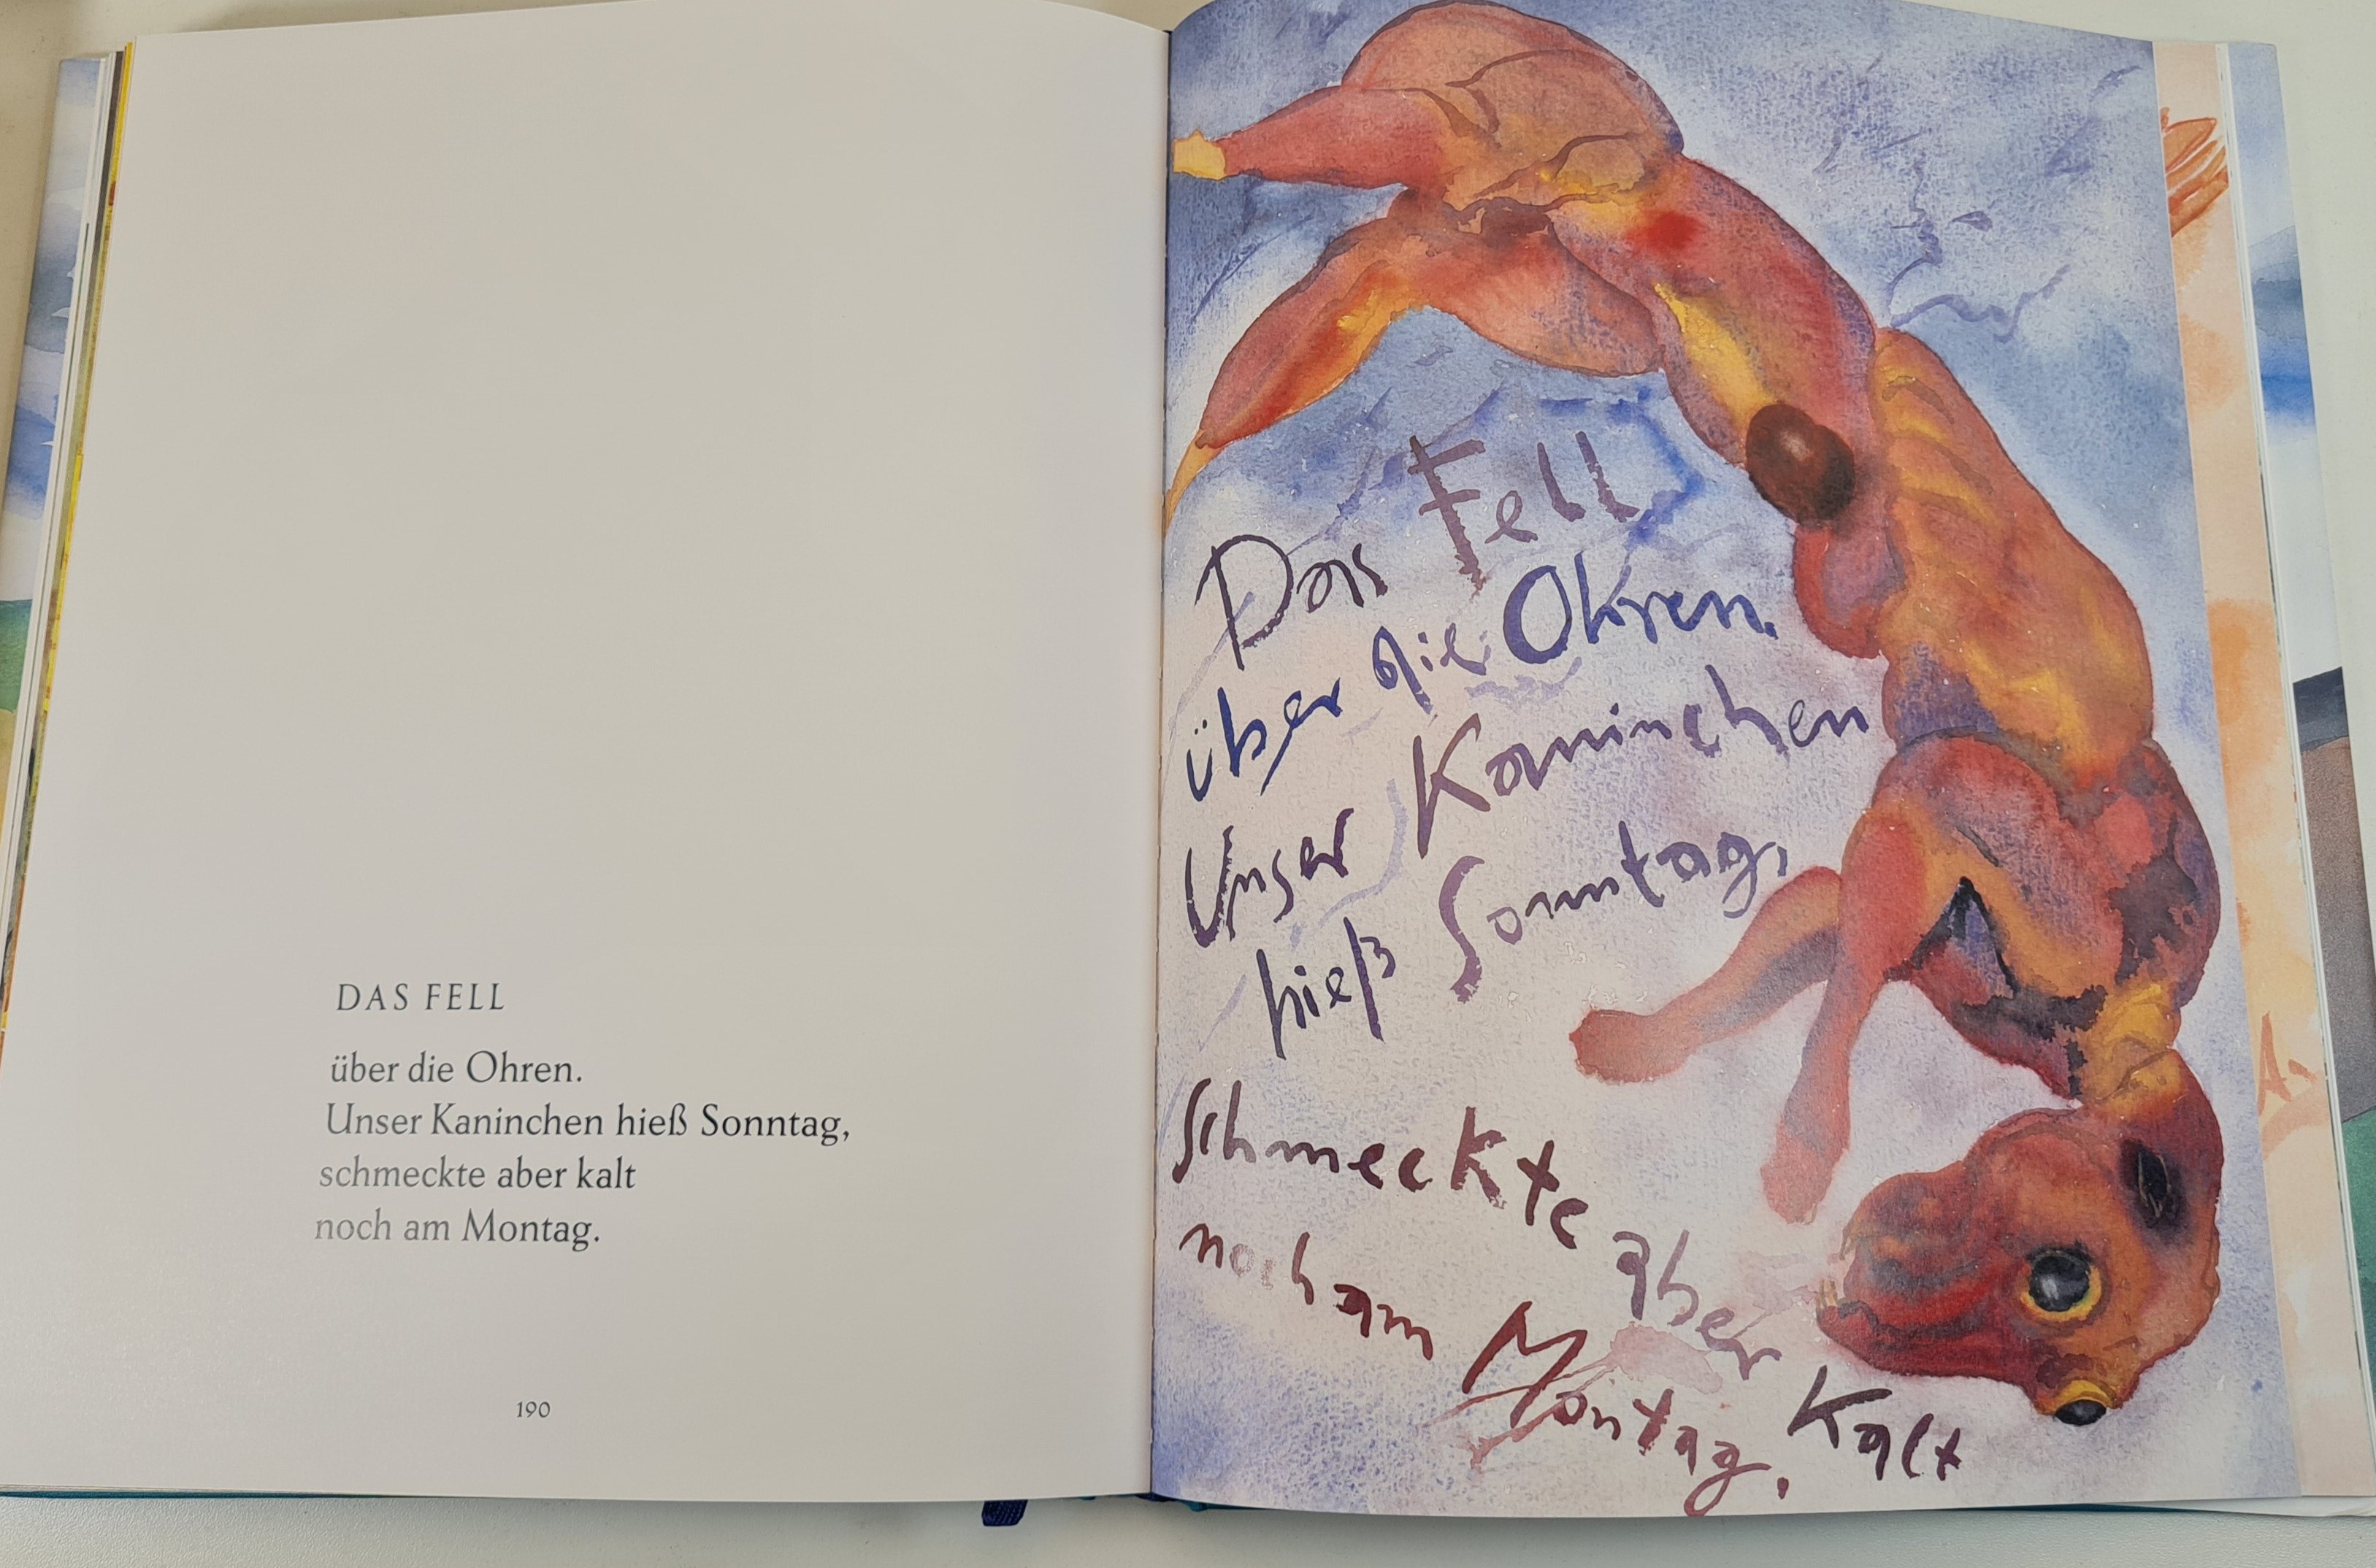 DAS FELL
über die Ohren.
Unser Kaninchen hieß Sonntag,
schmeckte aber kalt
noch am Montag.
190
Das Fell
über die Ohren.
Unser Kaninchen
hieß Sonntag,
schmeckte aber kalt
noch am Montag.
A